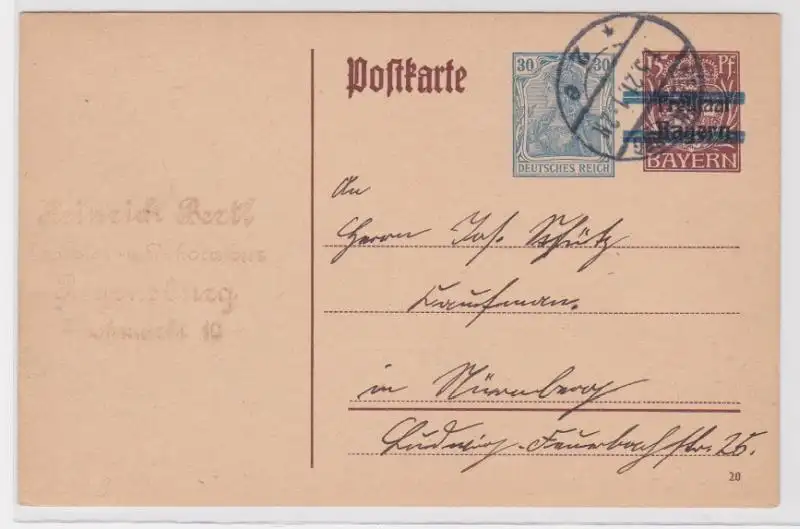 Postkarte
30 30
DEUTSCHES REICH
15 Pf
Freistaat
Bayern
BAYERN
An
Herrn Jos. Schütz
Kaufmann.
in Nürnberg
Ludwig-Feuerbachstr. 25.
Heinrich Bertl
Regensburg
10
20